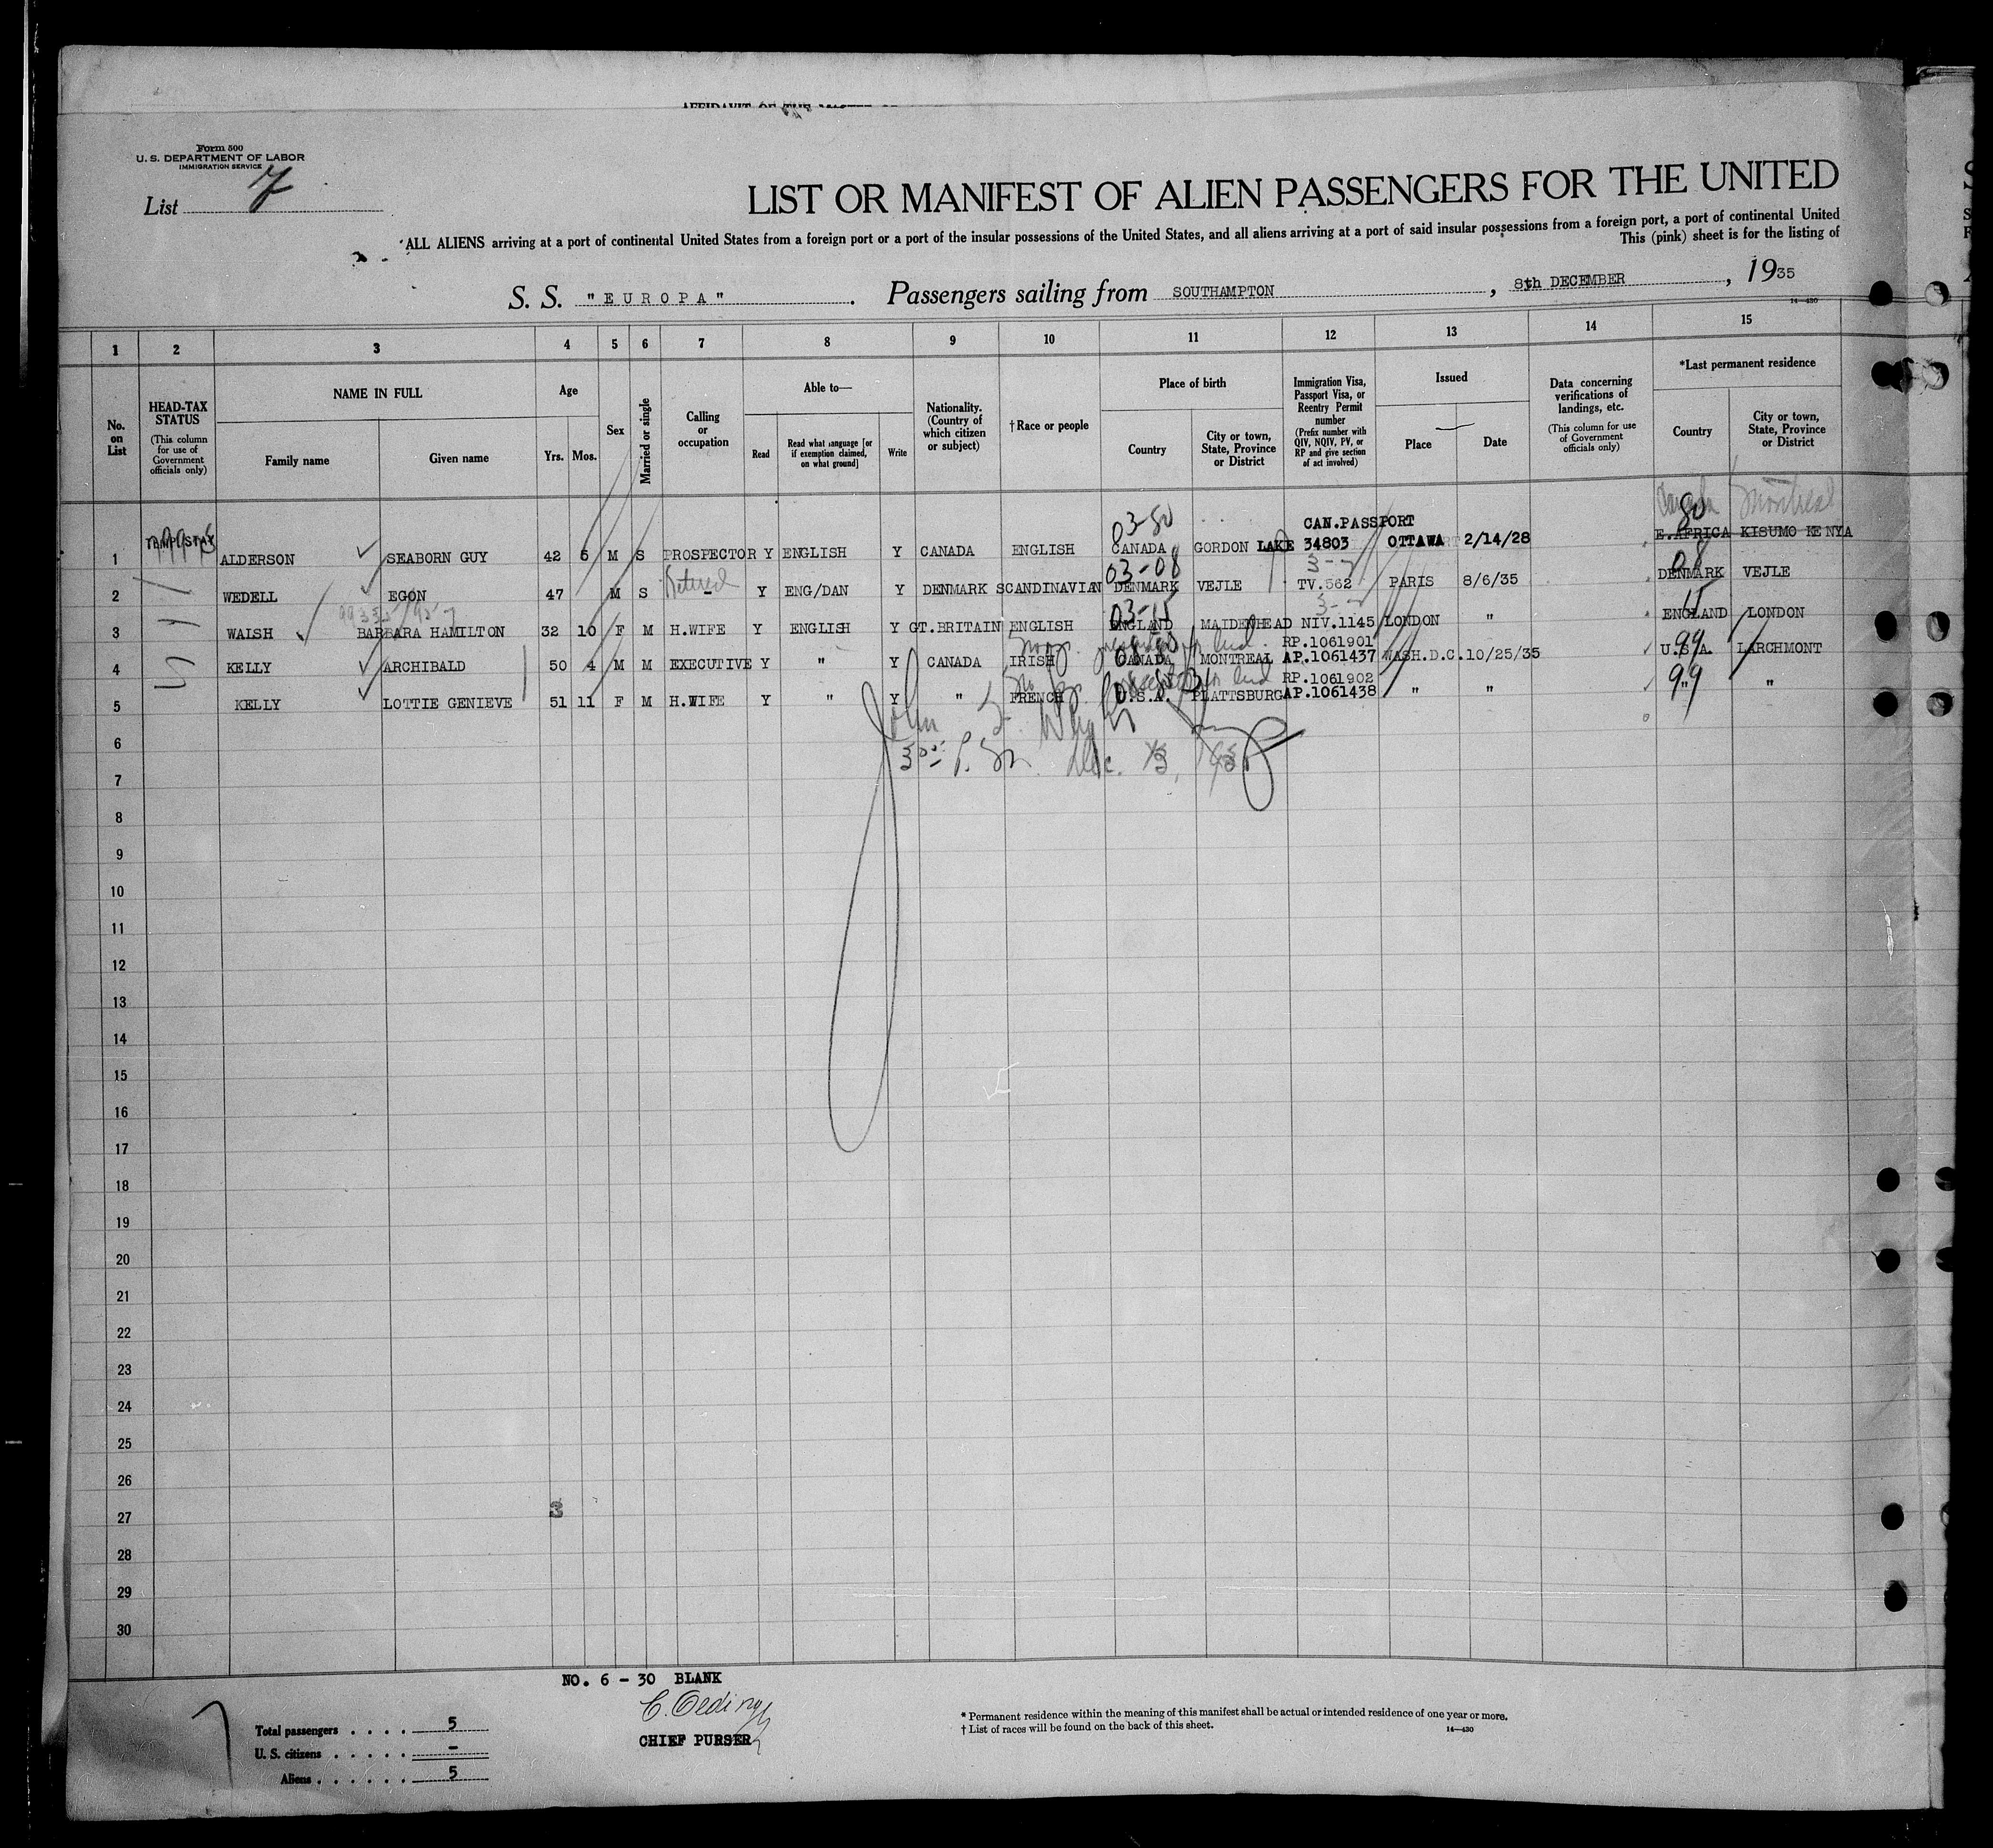 Form 500
U. S. DEPARTMENT OF LABOR
IMMIGRATION SERVICE
List 7
LIST OR MANIFEST OF ALIEN PASSENGERS FOR THE UNITED
ALL ALIENS arriving at a port of continental United States from a foreign port or a port of the insular possessions of the United States, and all aliens arriving at a port of said insular possessions from a foreign port, a port of continental United
This (pink) sheet is for the listing of
S. S. "EUROPA" . Passengers sailing from SOUTHAMPTON , 8th DECEMBER , 1935
14—430
1 2 3 4 5 6 7 8 9 10 11 12 13 14 15
No. on List
HEAD-TAX STATUS
(This column for use of Government officials only)
NAME IN FULL
Family name
Given name
Age
Yrs. Mos.
Sex
Married or single
Calling or occupation
Able to—
Read
Read what language [or if exemption claimed, on what ground]
Write
Nationality. (Country of which citizen or subject)
† Race or people
Place of birth
Country
City or town, State, Province or District
Immigration Visa, Passport Visa, or Reentry Permit number
(Prefix number with QIV, NQIV, PV, or RP and give section of act involved)
Issued
Place
Date
Data concerning verifications of landings, etc.
(This column for use of Government officials only)
*Last permanent residence
Country
City or town, State, Province or District
Canada Montreal
03-80 CAN.PASSPORT 80
1 ALDERSON SEABORN GUY 42 6 M S PROSPECTOR Y ENGLISH Y CANADA ENGLISH CANADA GORDON LAKE 34803 OTTAWA 2/14/28 E.AFRICA KISUMO KENYA
Retired 03-08 3-2 08
2 WEDELL EGON 47 M S - Y ENG/DAN Y DENMARK SCANDINAVIAN DENMARK VEJLE TV.562 PARIS 8/6/35 DENMARK VEJLE
03-15 15
3 WALSH BARBARA HAMILTON 32 10 F M H.WIFE Y ENGLISH Y GT.BRITAIN ENGLISH ENGLAND MAIDENHEAD NIV.1145 LONDON " ENGLAND LONDON
RP.1061901 99
4 KELLY ARCHIBALD 50 4 M M EXECUTIVE Y " Y CANADA IRISH CANADA MONTREAL AP.1061437 WASH.D.C. 10/25/35 U.S.A. LARCHMONT
RP.1061902 99
5 KELLY LOTTIE GENIEVE 51 11 F M H.WIFE Y " Y " FRENCH U.S.A. PLATTSBURG AP.1061438 " " " "
John
6
7
8
9
10
11
12
13
14
15
16
17
18
19
20
21
22
23
24
25
26
3
27
28
29
30
NO. 6 - 30 BLANK
CHIEF PURSER
Total passengers . . . . 5
U. S. citizens . . . . . -
Aliens . . . . . . 5
* Permanent residence within the meaning of this manifest shall be actual or intended residence of one year or more.
† List of races will be found on the back of this sheet.
14—430